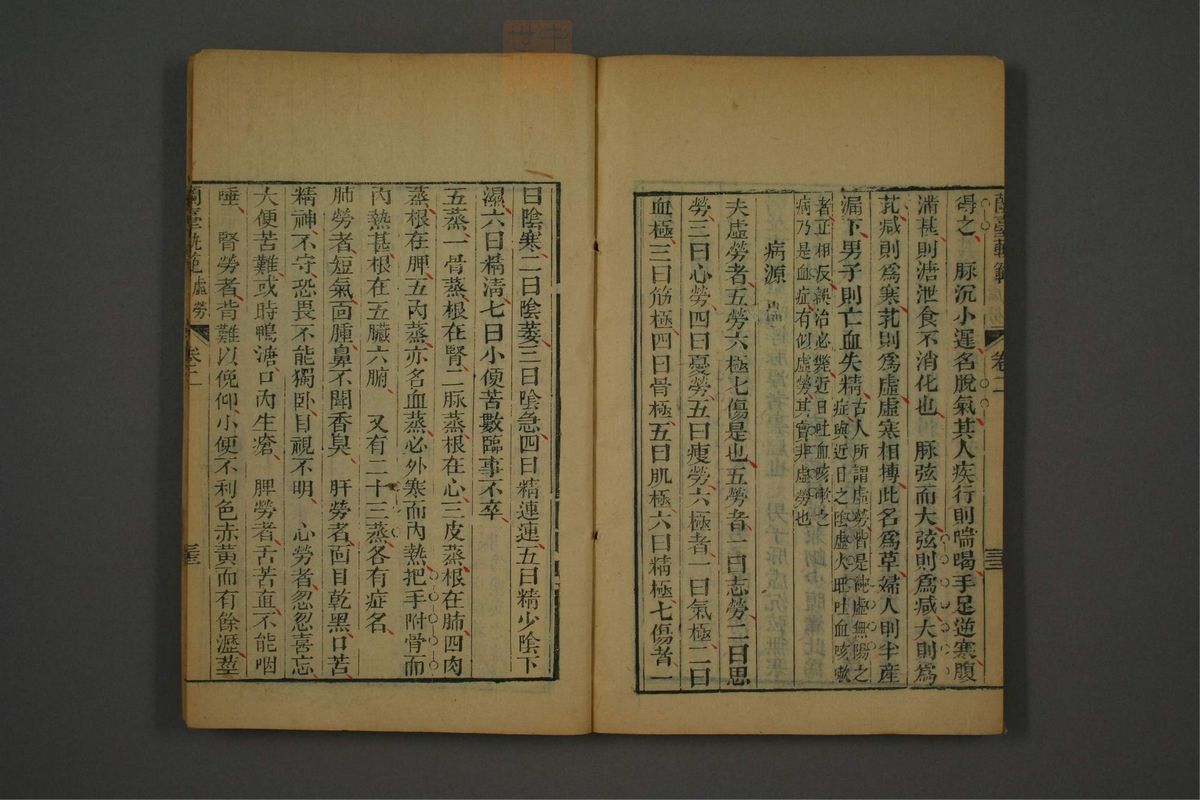 得之 脉沉小遲名脫氣其人疾行則喘喝手足逆寒腹
滿甚則溏泄食不消化也 脉弦而大弦則爲减大則爲
芤减則爲寒芤則爲虛虛寒相搏此名爲革婦人則半產
漏下男子則亡血失精古人所謂虛勞皆是純虛無陽之
症與近日之陰虛火旺吐血咳嗽
者正相反誤治必斃近日吐血咳嗽之
病乃是血症有似虛勞其實非虛勞也
病源
夫虛勞者五勞六極七傷是也五勞者一曰志勞二曰思
勞三曰心勞四曰憂勞五曰瘦勞六極者一曰氣極二曰
血極三曰筋極四曰骨極五曰肌極六曰精極七傷者一
卷二
曰陰寒二曰陰萎三曰陰急四曰精連連五曰精少陰下
濕六曰精清七曰小便苦數臨事不卒
五蒸一骨蒸根在腎二脉蒸根在心三皮蒸根在肺四肉
蒸根在脾五內蒸亦名血蒸必外寒而內熱把手附骨而
內熱甚根在五臟六腑 又有二十三蒸各有症名
肺勞者短氣面腫鼻不聞香臭 肝勞者面目乾黑口苦
精神不守恐畏不能獨臥目視不明 心勞者忽忽喜忘
大便苦難或時鴨溏口內生瘡 脾勞者舌苦直不能咽
唾 腎勞者背難以俛仰小便不利色赤黃而有餘瀝莖
蘭臺軌範 虛勞 卷二